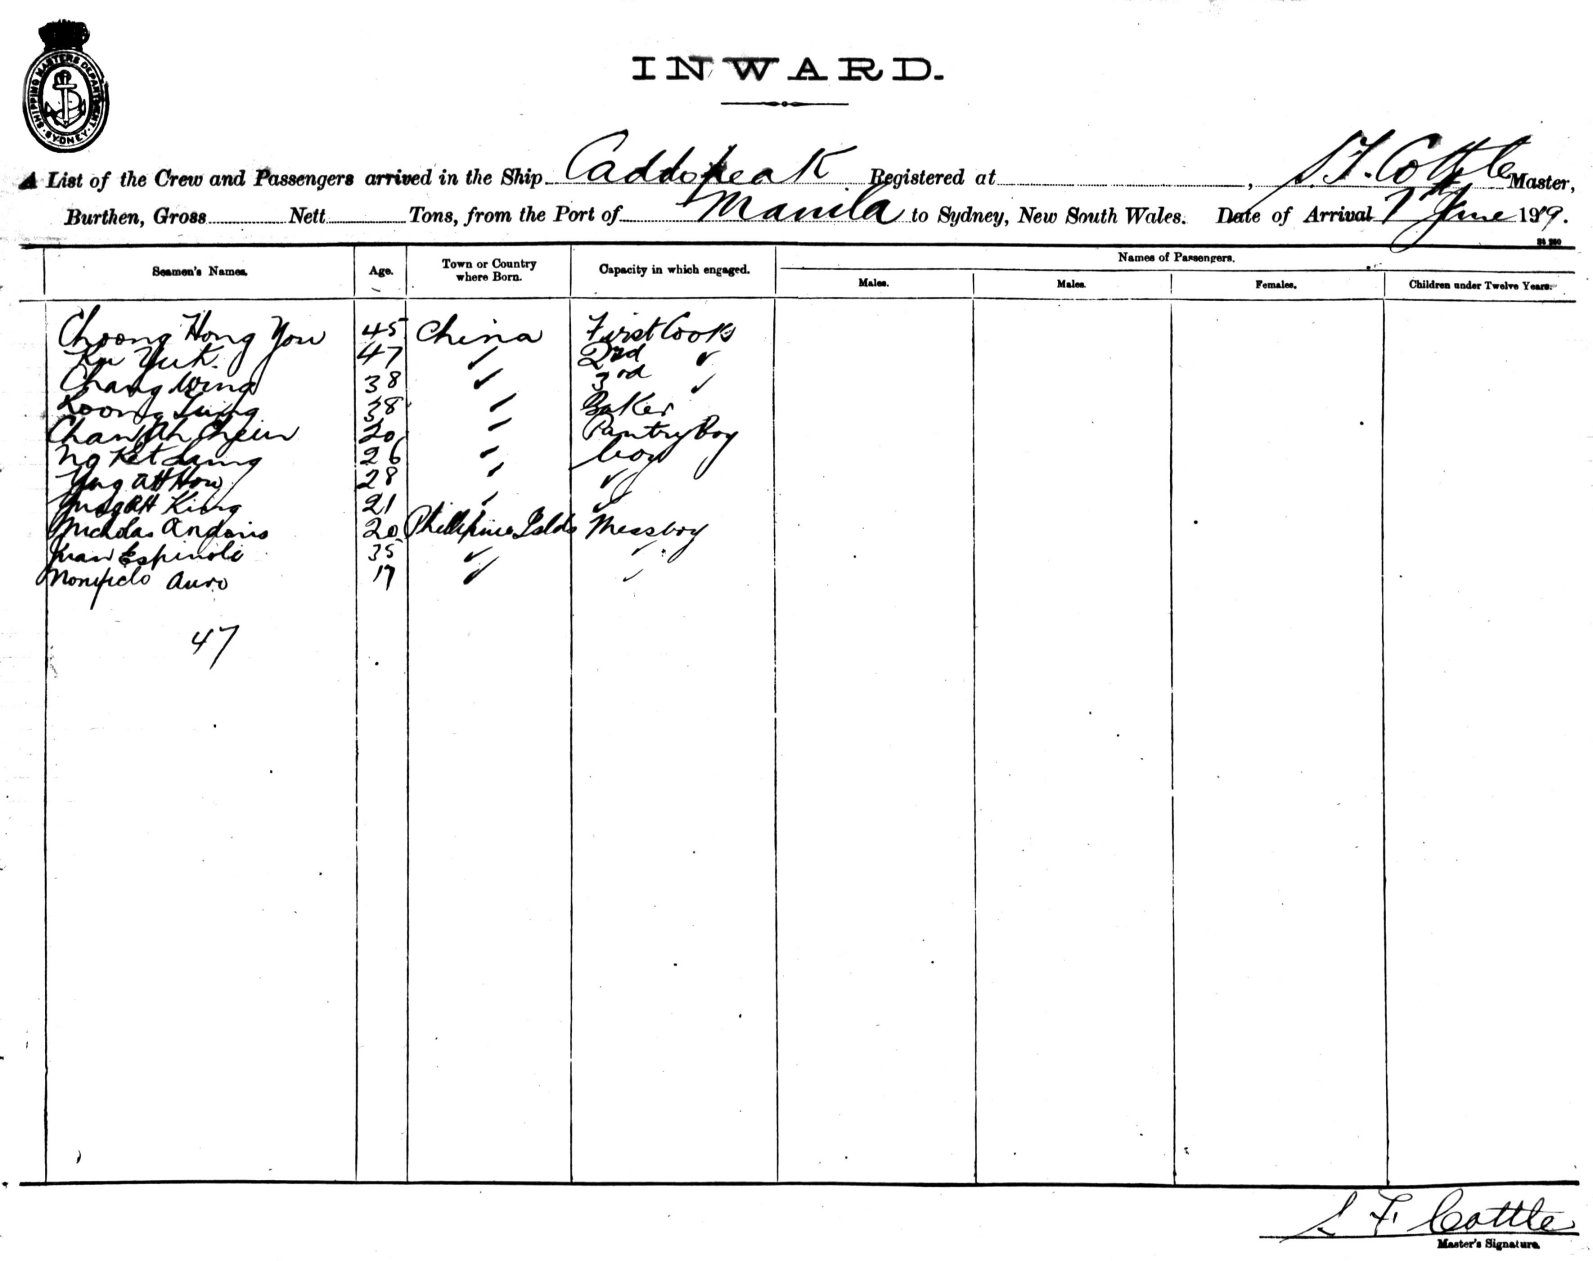 SHIPPING MASTERS DEPARTMENT
SYDNEY
INWARD.
A List of the Crew and Passengers arrived in the Ship Caddopeak Registered at , S. F. Cottle Master,
Burthen, Gross Nett Tons, from the Port of Manila to Sydney, New South Wales. Date of Arrival 7th June 1919.
Seamen's Names. Age. Town or Country where Born. Capacity in which engaged. Names of Passengers.
Males. Males. Females. Children under Twelve Years.
Choong Hong You 45 China First Cook
Yuk 47 " 2nd "
Chang Wing 38 " 3rd "
Koong 38 " Baker
Chan Ah 20 " Pantry Boy
Ng 26 " Boy
Ah How 28 " "
King 21 " "
Nicholas 20 Phillipine Islds Messboy
Juan Espinole 35 " "
Auro 17 " "
47
S F Cottle
Master's Signature